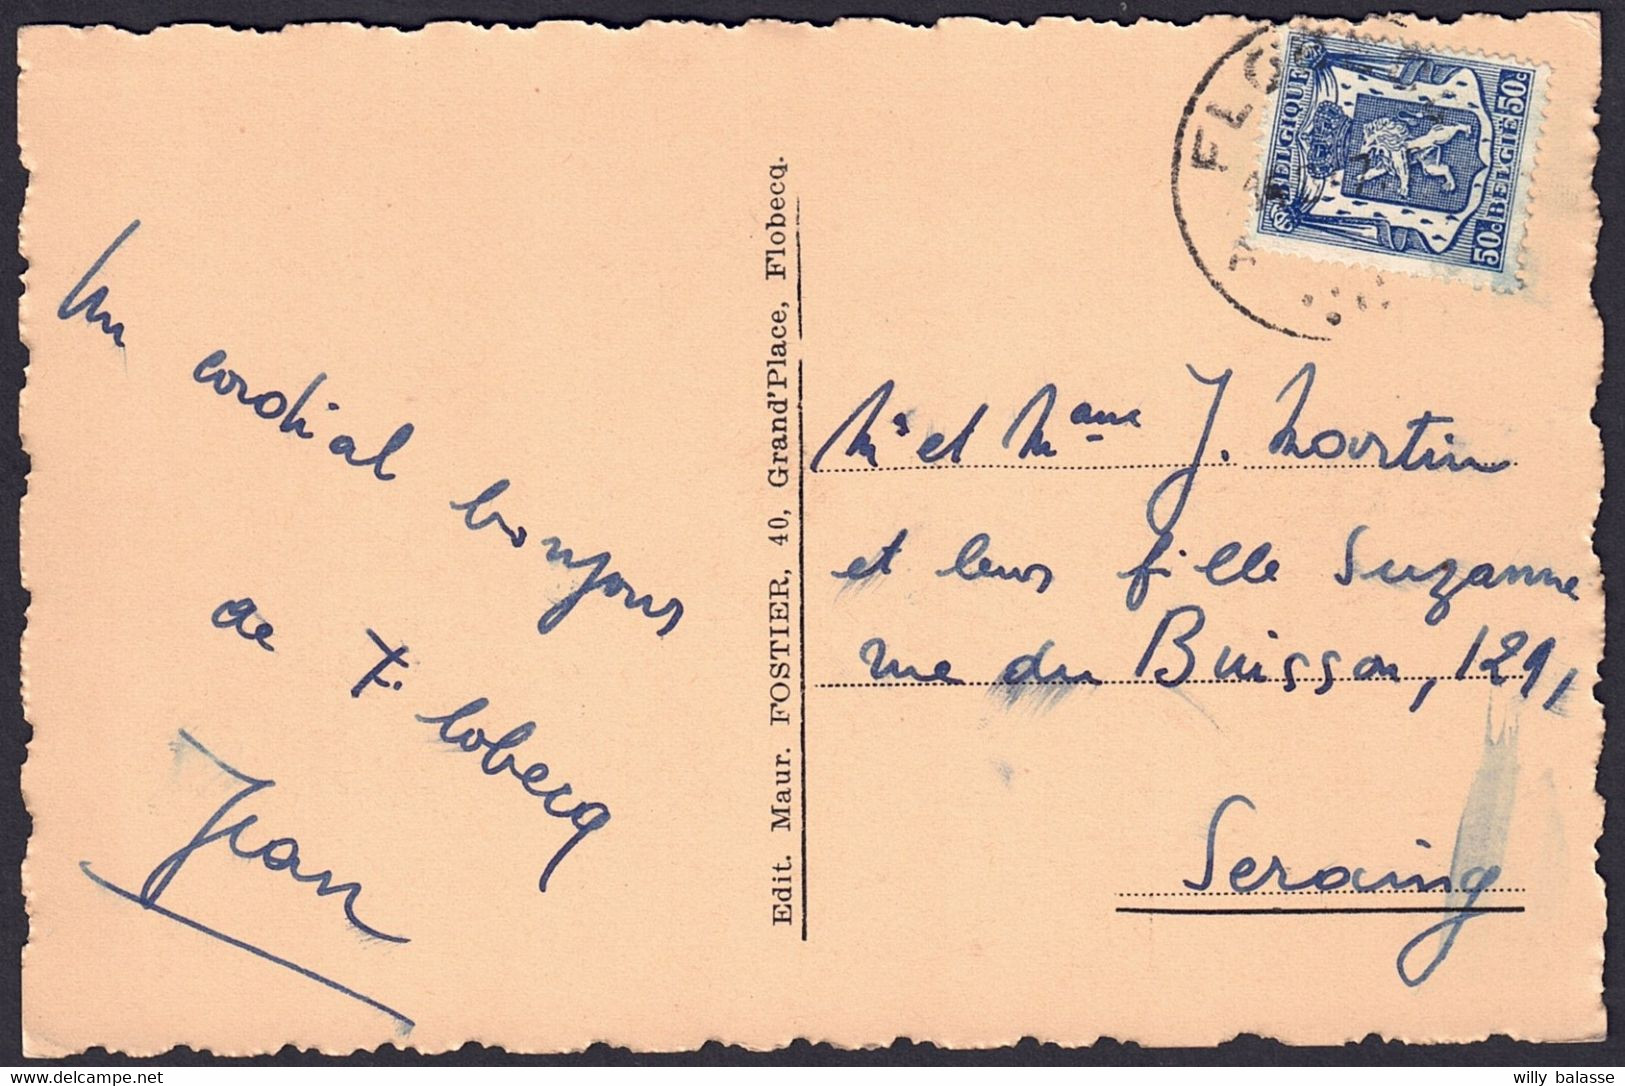 Un
cordial bonjour
de Flobecq
Jean
Edit. Maur. FOSTIER, 40, Grand'Place, Flobecq.
BELGIQUE
50c BELGIE 50c
FLO
Mr et Mme J. Martin
et leur fille Suzanne
rue du Buisson, 129,
Seraing
willy balasse